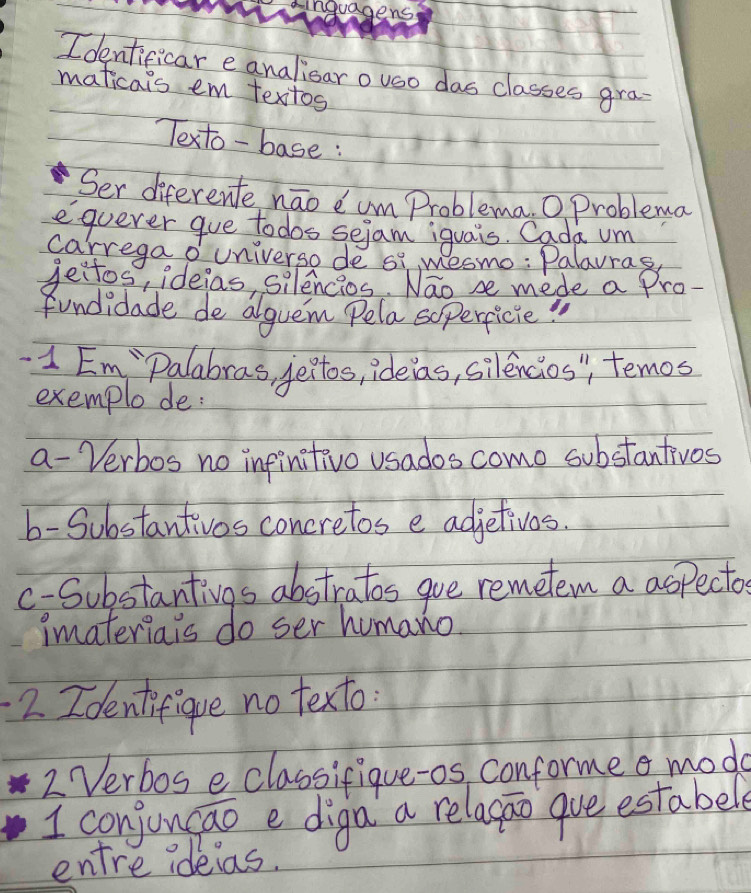 Linguagens
Identificar e analisar o uso das classes gra-
maticais em textos
Texto-base:
"Ser diferente não é um Problema. O Problema
é querer que todos sejam iguais. Cada um
carrega o universo de si mesmo: Palavras,
jeitos, ideias, silêncios. Não se mede a Pro-
fundidade de alguém Pela superfície"
-1 Em "Palabras, jeitos, ideias, silêncios", temos
exemplo de:
a- Verbos no infinitivo usados como substantivos
b- Substantivos concretos e adjetivos.
c- Substantivos abstratos que remetem a aspectos
imateriais do ser humano.
-2 Identifique no texto:
2 Verbos e classifique-os conforme o modo
1 conjunção e diga a relação que estabele
entre ideias.